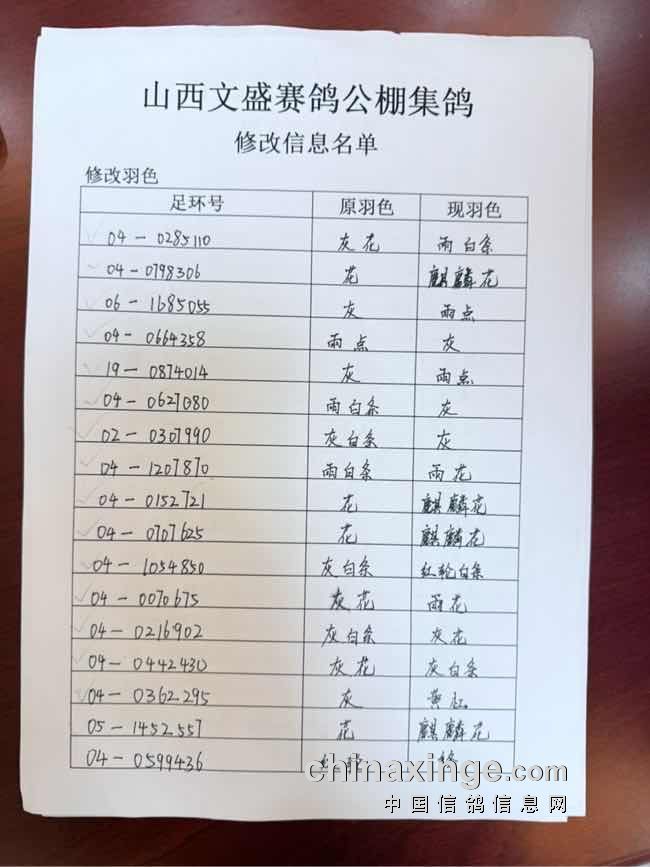 山西文盛赛鸽公棚集鸽
修改信息名单
修改羽色
足环号 原羽色 现羽色
04-0285110 灰花 雨白条
04-0798306 花 麒麟花
06-1685055 灰 雨点
04-0664358 雨点 灰
19-0874014 灰 雨点
04-0627080 雨白条 灰
02-0307990 灰白条 灰
04-1207870 雨白条 雨花
04-0152721 花 麒麟花
04-0707625 花 麒麟花
04-1054850 灰白条 红轮白条
04-0070675 灰花 雨花
04-0216902 灰白条 灰花
04-0442430 灰花 灰白条
04-0362295 灰 黄红
05-1452557 花 麒麟花
04-0599436
chinaxinge.com
中国信鸽信息网